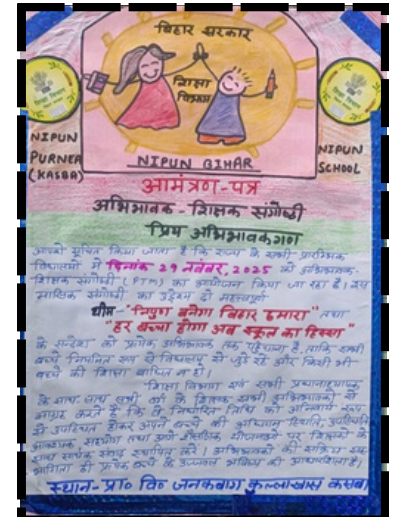 बिहार सरकार
शिक्षा
विभाग
NIPUN
PURNEA
(KASBA)
NIPUN
SCHOOL
NIPUN BIHAR
आमंत्रण-पत्र
अभिभावक-शिक्षक संगोष्ठी
प्रिय अभिभावकगण
आपको सूचित किया जाता है कि राज्य के सभी प्रारम्भिक
विद्यालयों में दिनांक 29 नवंबर, 2025 को अभिभावक-
शिक्षक संगोष्ठी (PTM) का आयोजन किया जा रहा है। इस
मासिक संगोष्ठी का उद्देश्य दो महत्वपूर्ण
थीम-"निपुण बनेगा बिहार हमारा" तथा
"हर बच्चा होगा अब स्कूल का हिस्सा"
के सन्देश को प्रत्येक अभिभावक तक पहुँचाना है, ताकि सभी
बच्चे नियमित रूप से विद्यालय से जुड़े रहें और किसी भी
बच्चे की शिक्षा बाधित न हो।
शिक्षा विभाग एवं सभी प्रधानाध्यापक
के साथ-साथ सभी वर्ग के शिक्षक सभी अभिभावकों से
आग्रह करते हैं कि वे निर्धारित तिथि को अनिवार्य रूप
से उपस्थित होकर अपने बच्चे की अधिगम स्थिति, उपस्थिति
आवश्यक, सहयोग तथा आगे शैक्षणिक योजनाओं पर शिक्षकों के
साथ सार्थक संवाद स्थापित करें। अभिभावकों की सक्रिय सह-
भागिता ही प्रत्येक बच्चे के उज्जवल भविष्य की आधारशिला है।
स्थान-प्रा० वि० जनकबाग कुल्लाखास कसबा